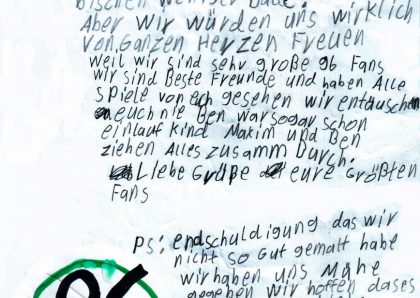 bischen weniger
Aber wir würden uns wirklich
von.ganzen Herzen Freuen
weil wir sind sehr große 96 Fans
wir sind Beste Freunde und haben Alle
spiele von ech gesehen wir entäuschen
euch nie Ben war sogar schon
einlauf kind Makim und Ben
ziehen Alles zusamm Durch.
Lliebe Grüße eure Größten
Fans
Ps: endschuldigung das wir
nicht so gut gemalt habe
wir haben uns Mühe
gegeben wir hoffen dases
96